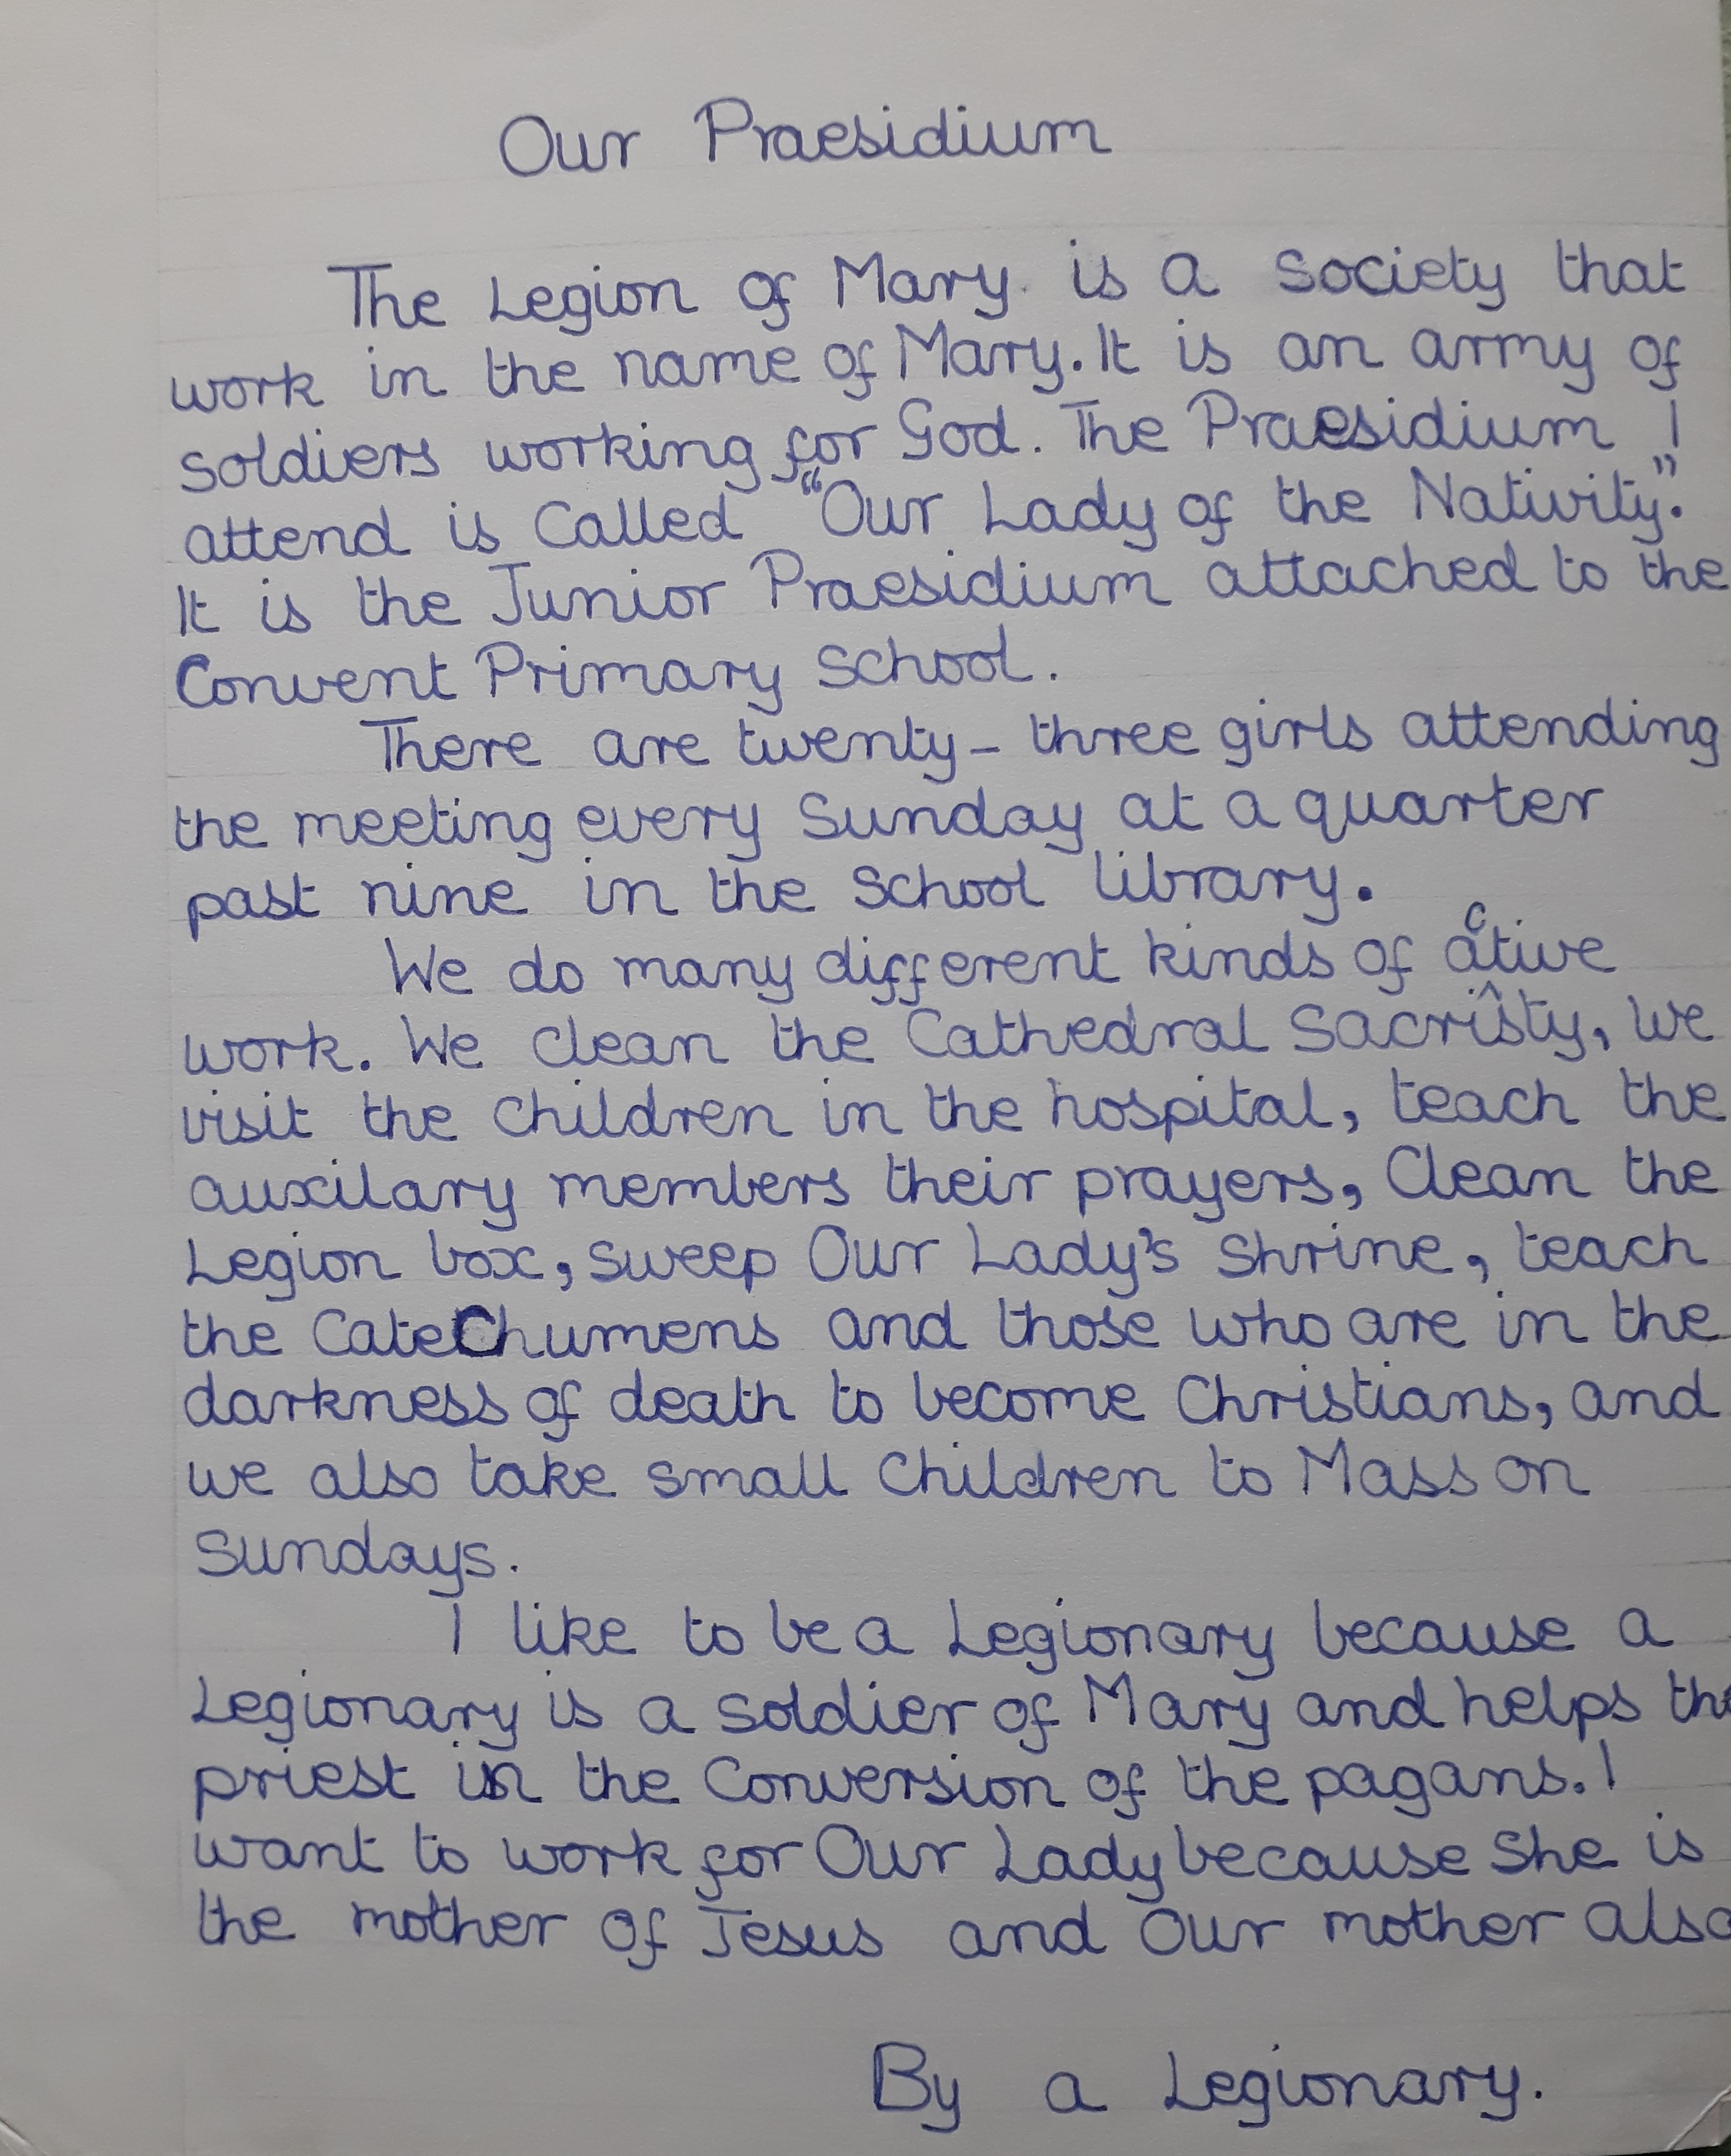 Our Praesidium
The Legion of Mary is a society that
work in the name of Mary. It is an army of
soldiers working for God. The Praesidium I
attend is called "Our Lady of the Nativity".
It is the Junior Praesidium attached to the
Convent Primary School.
There are twenty-three girls attending
the meeting every Sunday at a quarter
past nine in the school library.
We do many different kinds of active
work. We clean the Cathedral Sacristy, we
visit the children in the hospital, teach the
auxilary members their prayers, clean the
Legion box, sweep Our Lady's shrine, teach
the Catechumens and those who are in the
darkness of death to become Christians, and
we also take small children to Mass on
Sundays.
I like to be a Legionary because a
Legionary is a soldier of Mary and helps the
priest in the conversion of the pagans. I
want to work for Our Lady because she is
the mother of Jesus and our mother also
By a Legionary.